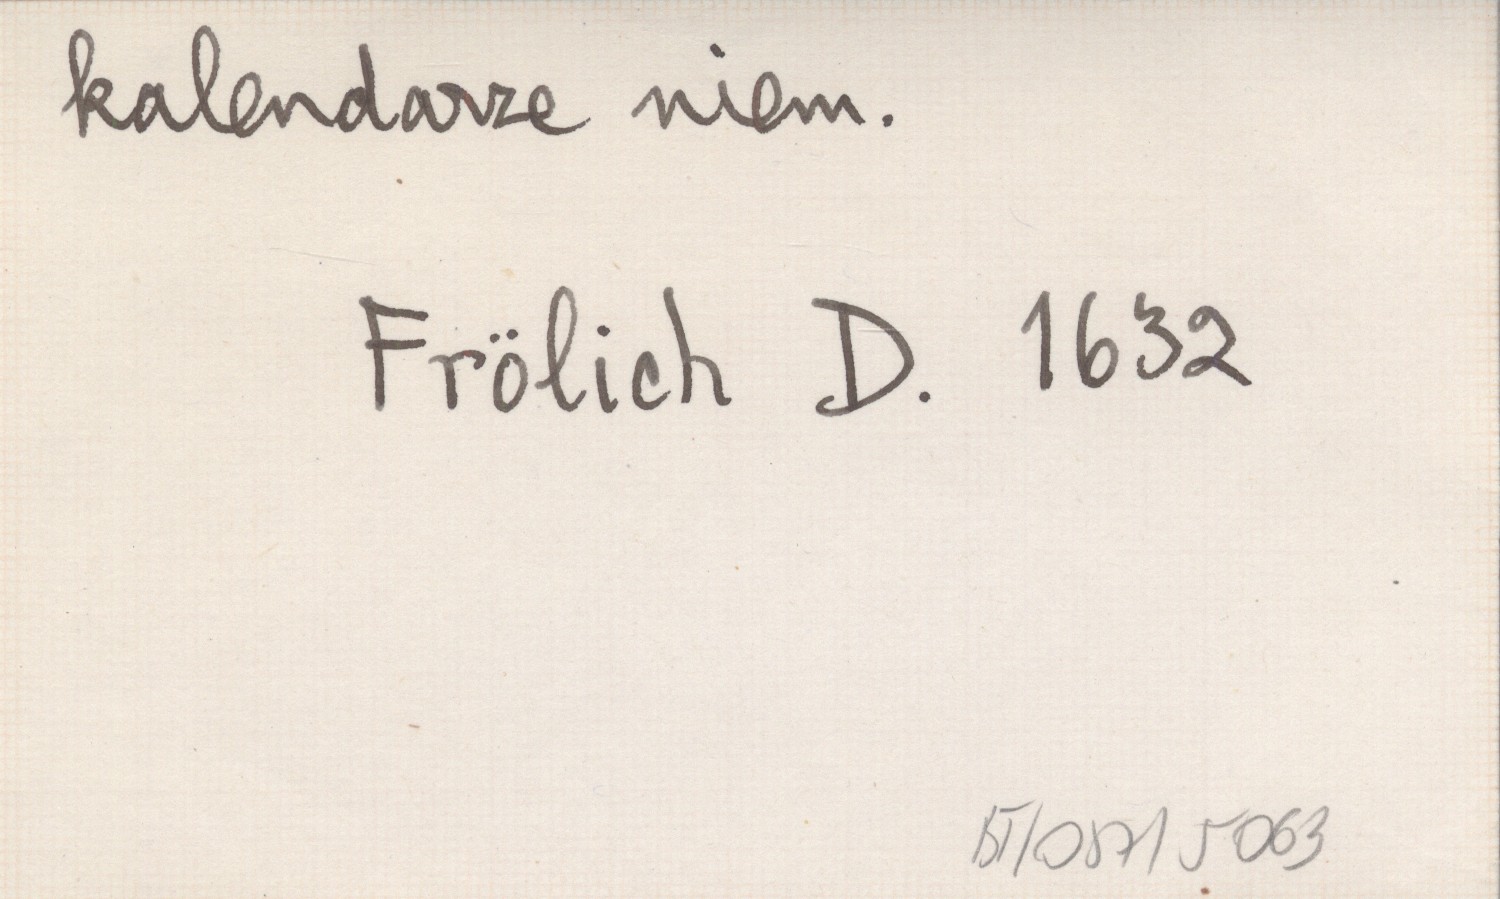 kalendarze niem.
Frölich D. 1632
5063